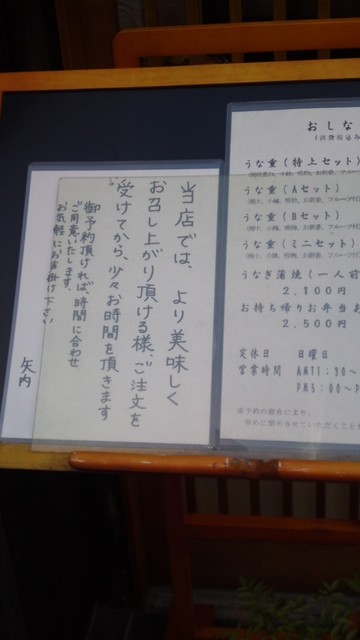 当店では、より美味しく
お召し上がり頂ける様、ご注文を
受けてから、少々お時間を頂きます
御予約頂ければ、時間に合わせ
ご用意いたします。
お気軽にお声掛け下さい
矢内
おしな
うな重(特上セット)
うな重(Aセット)
うな重(Bセット)
うな重(ミニセット)
うなぎ蒲焼(一人前
2,100円
お持ち帰りお弁当
2,500円
定休日 日曜日
営業時間 AM11:30~
PM5:00~P
※予約の都合により、
早めに閉めさせていただくことも